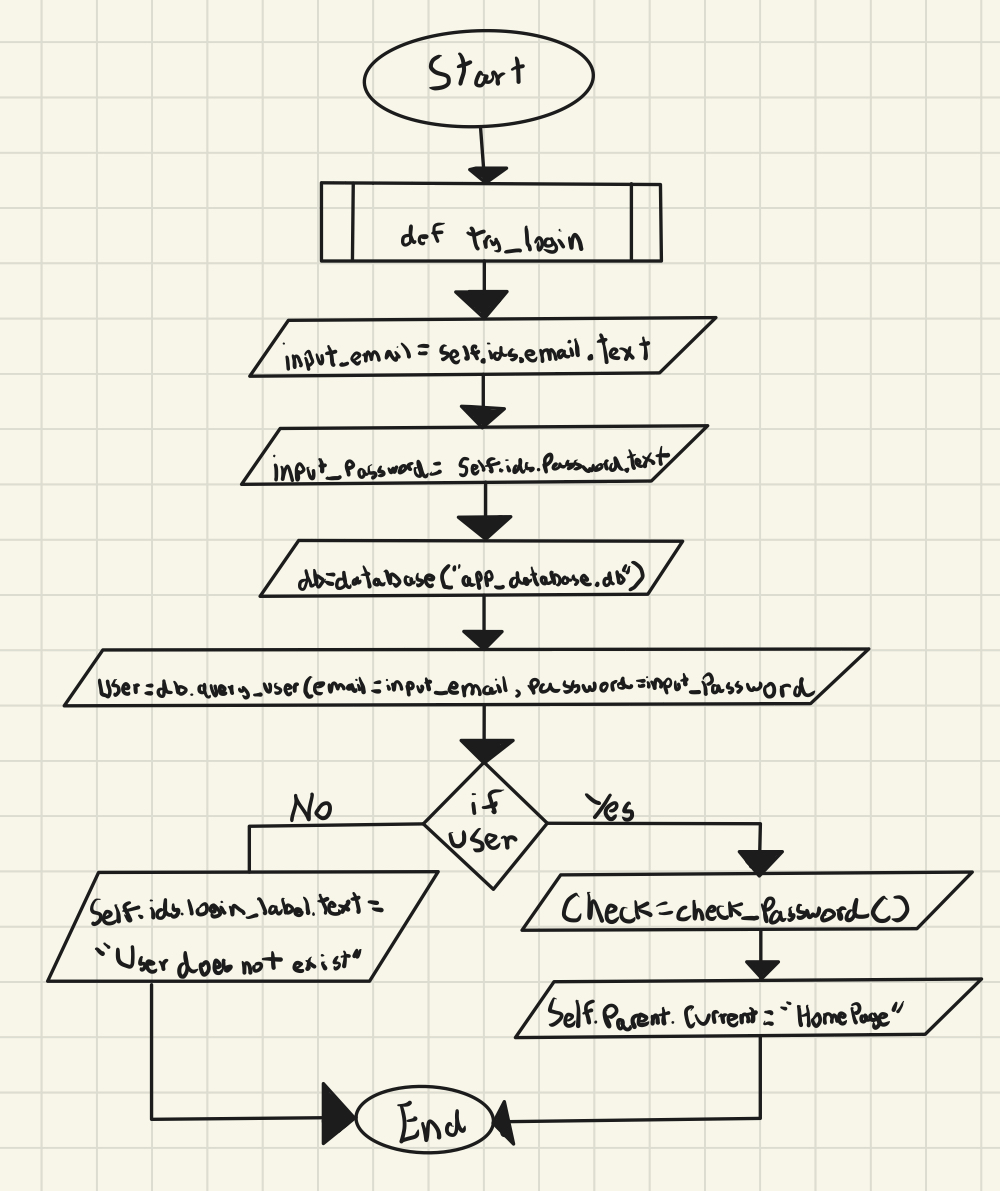 Start
def try_login
input_email = self.ids.email.text
input_Password= Self.ids.Password.text
db=database("app_database.db")
User=db.query_user(email=input_email, password=input_Password
if
user
No
Yes
Self.ids.login_label.text=
"User does not exist"
Check=check_Password()
Self.Parent.Current="HomePage"
End